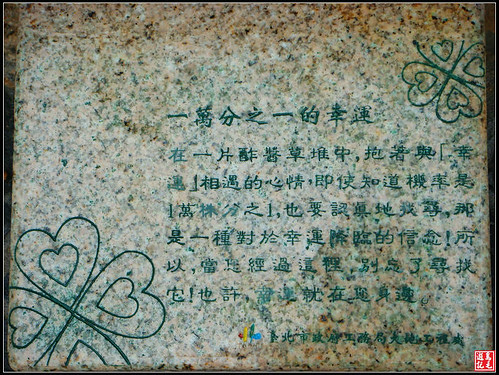 一萬分之一的幸運
在一片酢醬草堆中，抱著與「幸
運」相遇的心情，即使知道機率是
「萬株分之一」，也要認真地找尋，那
是一種對於幸運降臨的信念！所
以，當您經過這裡，別忘了尋找
它！也許，幸運就在您身邊。
臺北市政府工務局大地工程處